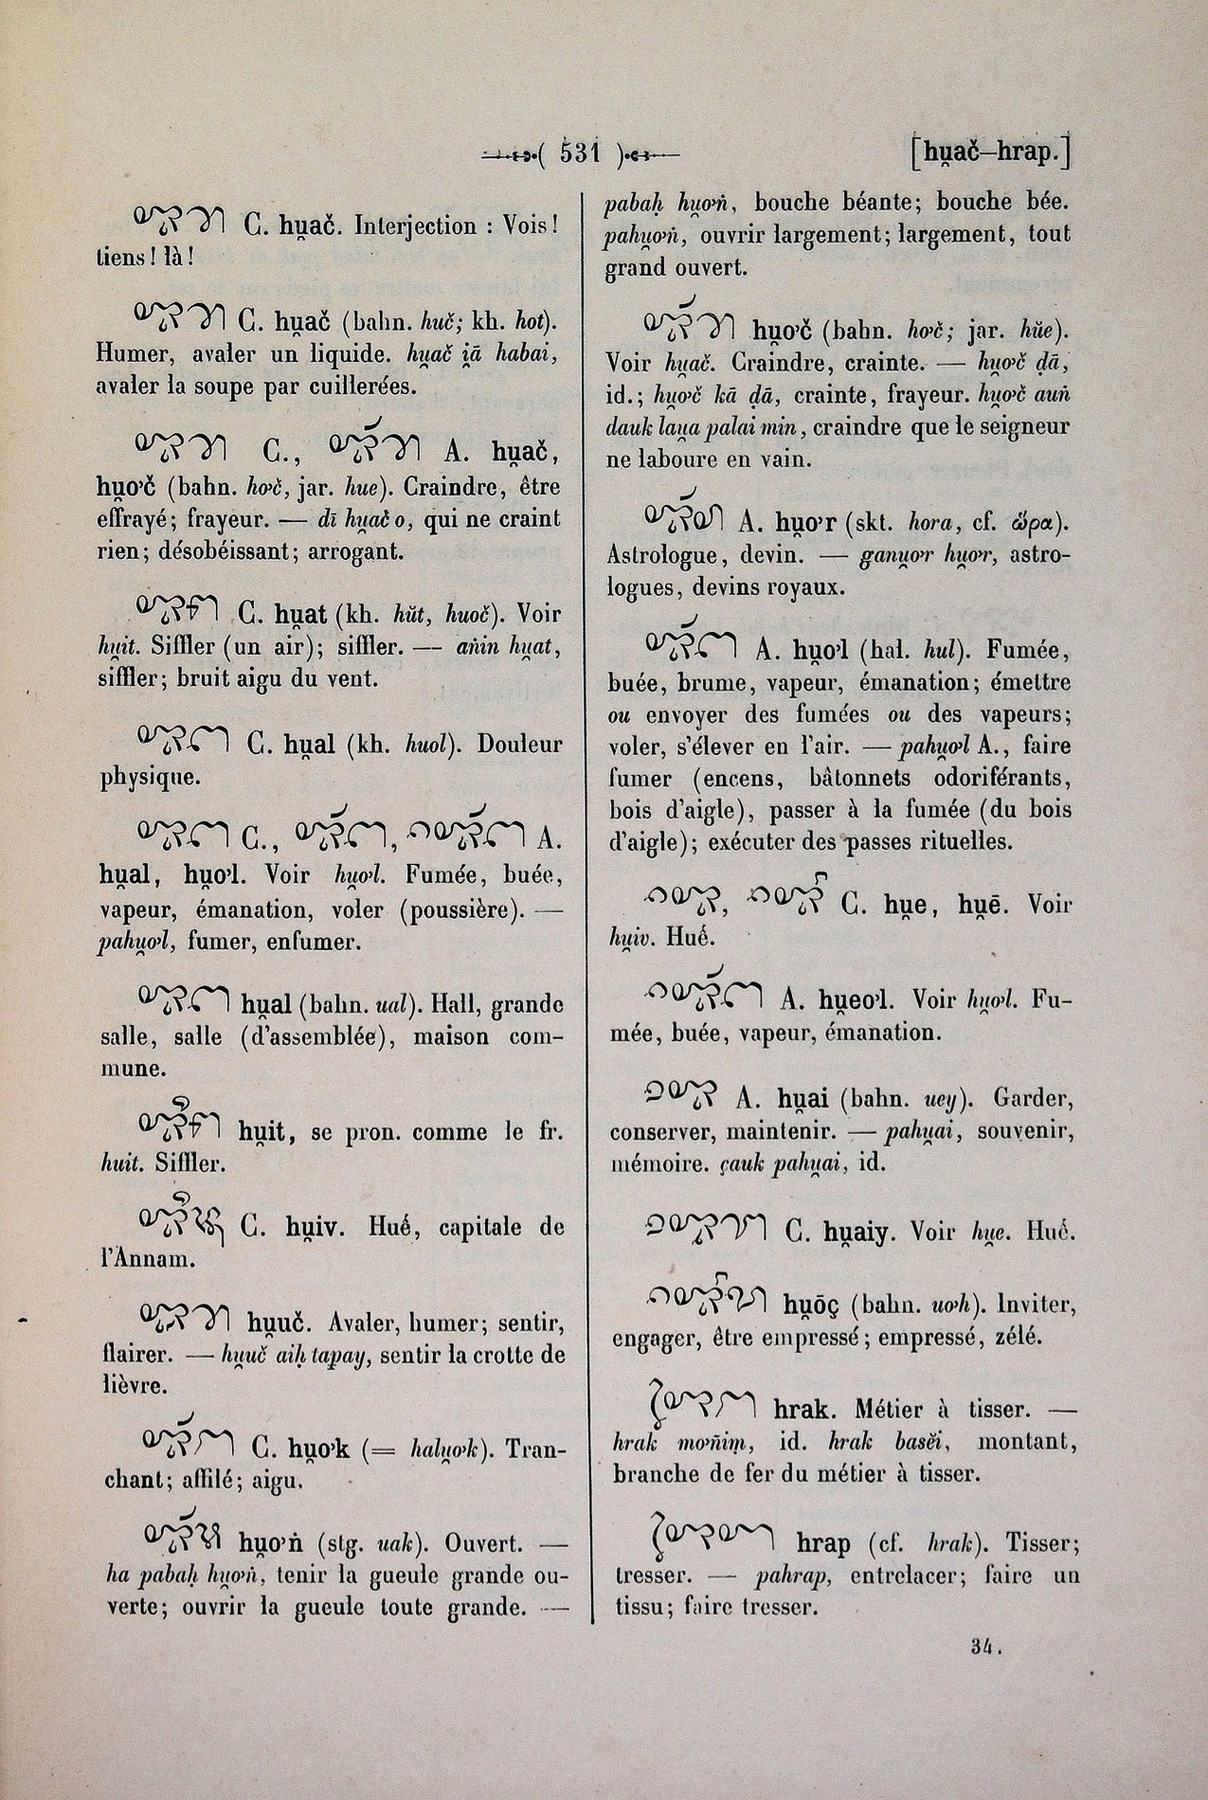 ( 531 )
[hu̯ač–hrap.]
C. hu̯ač. Interjection : Vois!
tiens! là!
C. hu̯ač (bahn. huč; kh. hot).
Humer, avaler un liquide. hu̯ač i̯ā habai,
avaler la soupe par cuillerées.
C., A. hu̯ač,
hu̯o’č (bahn. ho’č, jar. hue). Craindre, être
effrayé; frayeur. — dī hu̯ač o, qui ne craint
rien; désobéissant; arrogant.
C. hu̯at (kh. hŭt, huoč). Voir
hu̯it. Siffler (un air); siffler. — añin hu̯at,
siffler; bruit aigu du vent.
C. hu̯al (kh. huol). Douleur
physique.
C., , A.
hu̯al, hu̯o’l. Voir hu̯o’l. Fumée, buée,
vapeur, émanation, voler (poussière). —
pahu̯o’l, fumer, enfumer.
hu̯al (bahn. ual). Hall, grande
salle, salle (d’assemblée), maison com-
mune.
hu̯it, se pron. comme le fr.
huit. Siffler.
C. hu̯iv. Hué, capitale de
l’Annam.
hu̯uč. Avaler, humer; sentir,
flairer. — hu̯uč aiḥ tapay, sentir la crotte de
lièvre.
C. hu̯o’k (= halu̯o’k). Tran-
chant; affilé; aigu.
hu̯o’ṅ (stg. uak). Ouvert. —
ha pabaḥ hu̯o’ṅ, tenir la gueule grande ou-
verte; ouvrir la gueule toute grande. —
pabaḥ hu̯o’ṅ, bouche béante; bouche bée.
pahu̯o’ṅ, ouvrir largement; largement, tout
grand ouvert.
hu̯o’č (bahn. ho’č; jar. hŭe).
Voir hu̯ač. Craindre, crainte. — hu̯o’č ḍā,
id.; hu̯o’č kā ḍā, crainte, frayeur. hu̯o’č auṅ
dauk lau̯a palai min, craindre que le seigneur
ne laboure en vain.
A. hu̯o’r (skt. hora, cf. ὥρα).
Astrologue, devin. — ganu̯o’r hu̯o’r, astro-
logues, devins royaux.
A. hu̯o’l (hal. hul). Fumée,
buée, brume, vapeur, émanation; émettre
ou envoyer des fumées ou des vapeurs;
voler, s’élever en l’air. — pahu̯o’l A., faire
fumer (encens, bâtonnets odoriférants,
bois d’aigle), passer à la fumée (du bois
d’aigle); exécuter des passes rituelles.
, C. hu̯e, hu̯ē. Voir
hu̯iv. Hué.
A. hu̯eo’l. Voir hu̯o’l. Fu-
mée, buée, vapeur, émanation.
A. hu̯ai (bahn. uey). Garder,
conserver, maintenir. — pahu̯ai, souvenir,
mémoire. çauk pahu̯ai, id.
C. hu̯aiy. Voir hu̯e. Hué.
hu̯ōç (bahn. uo’h). Inviter,
engager, être empressé; empressé, zélé.
hrak. Métier à tisser. —
hrak mo’ñiṃ, id. hrak basĕi, montant,
branche de fer du métier à tisser.
hrap (cf. hrak). Tisser;
tresser. — pahrap, entrelacer; faire un
tissu; faire tresser.
34.